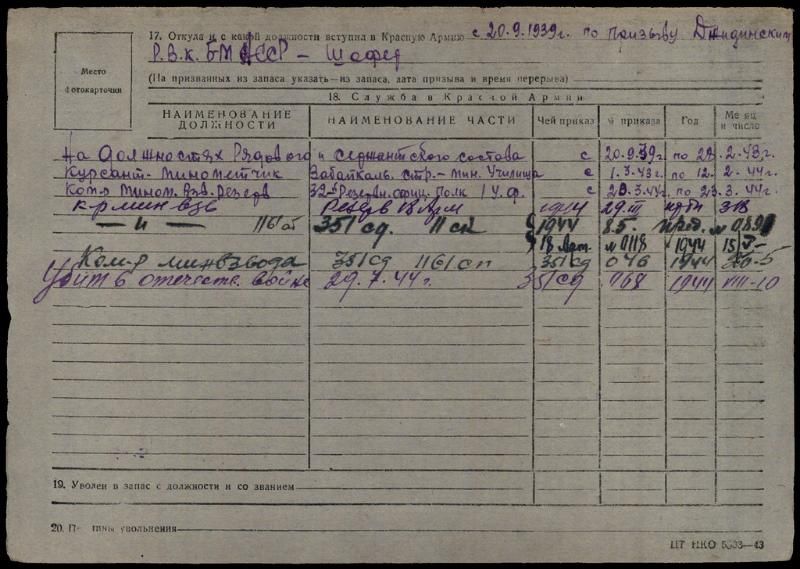 17. Откуда и с какой должности вступил в Красную Армию с 20.9.1939г. по призыву Джидинским
Р.В.к. БМАССР – Шофер
(На призванных из запаса указать—из запаса, дата призыва и время перерыва)
Место
фотокарточки
18. Служба в Красной Армии
НАИМЕНОВАНИЕ ДОЛЖНОСТИ НАИМЕНОВАНИЕ ЧАСТИ Чей приказ № приказа Год Месяц и число
На должностях Рядового и сержантского состава с 20.9.39г. по 28.2.43г.
Курсант-минометчик Забайкальс. стр.-мин. Училища с 1.3.43г. по 12.2.44г.
Ком-р Мином. взв. Резерв 32й Резервн. офиц. полк 1 У.ф. с 23.3.44г.
к-р мин взв Резерв 18 Арм 1944 29.III
— и — 1161 351 сд. 11 ск 1944 85.
18 Арм №0118 1944 15
Ком-р минвзвода 351 сд 1161 сп 351 сд 046 1944 26-5
Убит в отечеств. войне 29.7.44г. 351 сд 068 1944 VIII-10
19. Уволен в запас с должности и со званием
20. Причины увольнения
ЦТ НКО 43